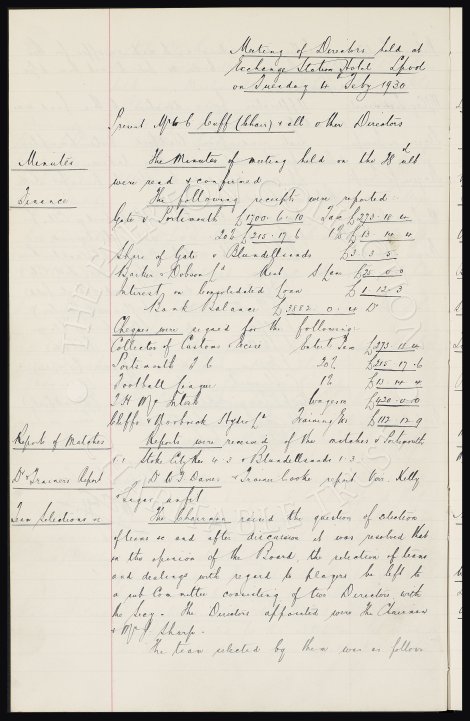 Meeting of Directors held at
Exchange Station Hotel Lpool
on Tuesday 4th Feby 1930
Present Mr W C Cuff (Chair) & all other Directors
Minutes
The Minutes of meeting held on the 28th ult
were read & confirmed
Finance
The following receipts were reported
Gate v Portsmouth £1700. 6. 10 Tax £273. 18. 4
20% £215. 17. 6 1% £13. 14. 4
Share of Gate v Blundellsands £3. 3. 5
Barker & Dobson Ld Rent £25. 0. 0
Interest on Consolidated Loan £1. 12. 3
Bank Balance £3882. 0. 4 Dr
Cheques were signed for the following:
Collector of Customs & Excise Entert Tax £273. 18. 4
Portsmouth F C 20% £215. 17. 6
Football League 1% £13. 14. 4
Wages £420. 0. 0
Training Ex £112. 12. 9
Reports of Matches
Reports were received of the matches v Portsmouth
1.1. Stoke City Res 4. 3 & Blundellsands 1. 3.
Dr & Trainers Report
Trainer Cooke report Kelly
unfit
Team Selections &c
The Chairman raised the question of selection
of teams &c and after discussion it was resolved that
in the opinion of the Board, the selection of teams
and dealings with regard to players be left to
a sub Committee consisting of two Directors, with
the Secy. The Directors appointed were The Chairman
& Mr J Sharp.
The team selected by them was as follows